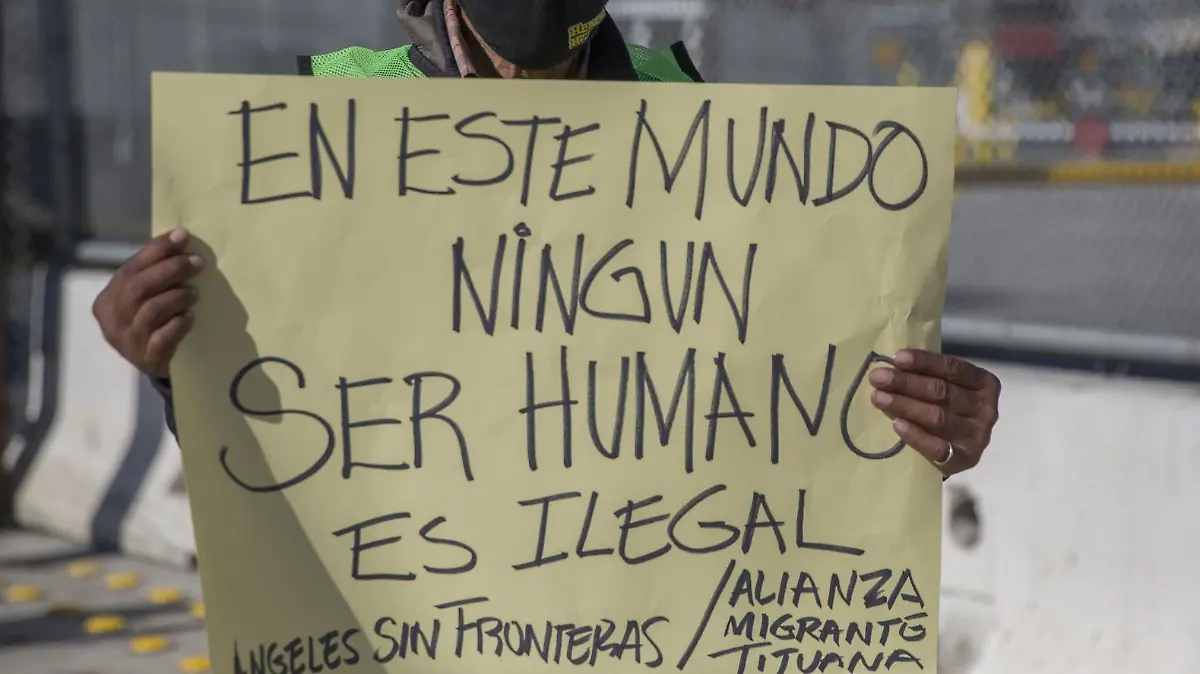 EN ESTE MUNDO
NINGUN
SER HUMANO
ES ILEGAL
ANGELES SIN FRONTERAS /
ALIANZA
MIGRANTE
TITUANA